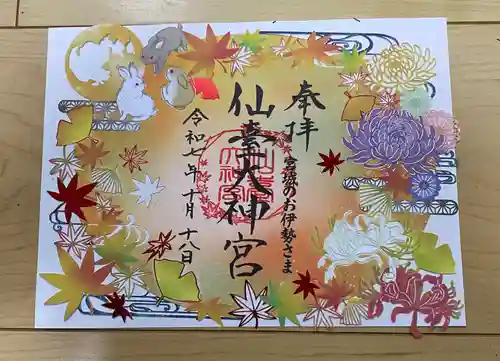 奉拝
宮城のお伊勢さま
仙臺大神宮
令和七年十月十八日